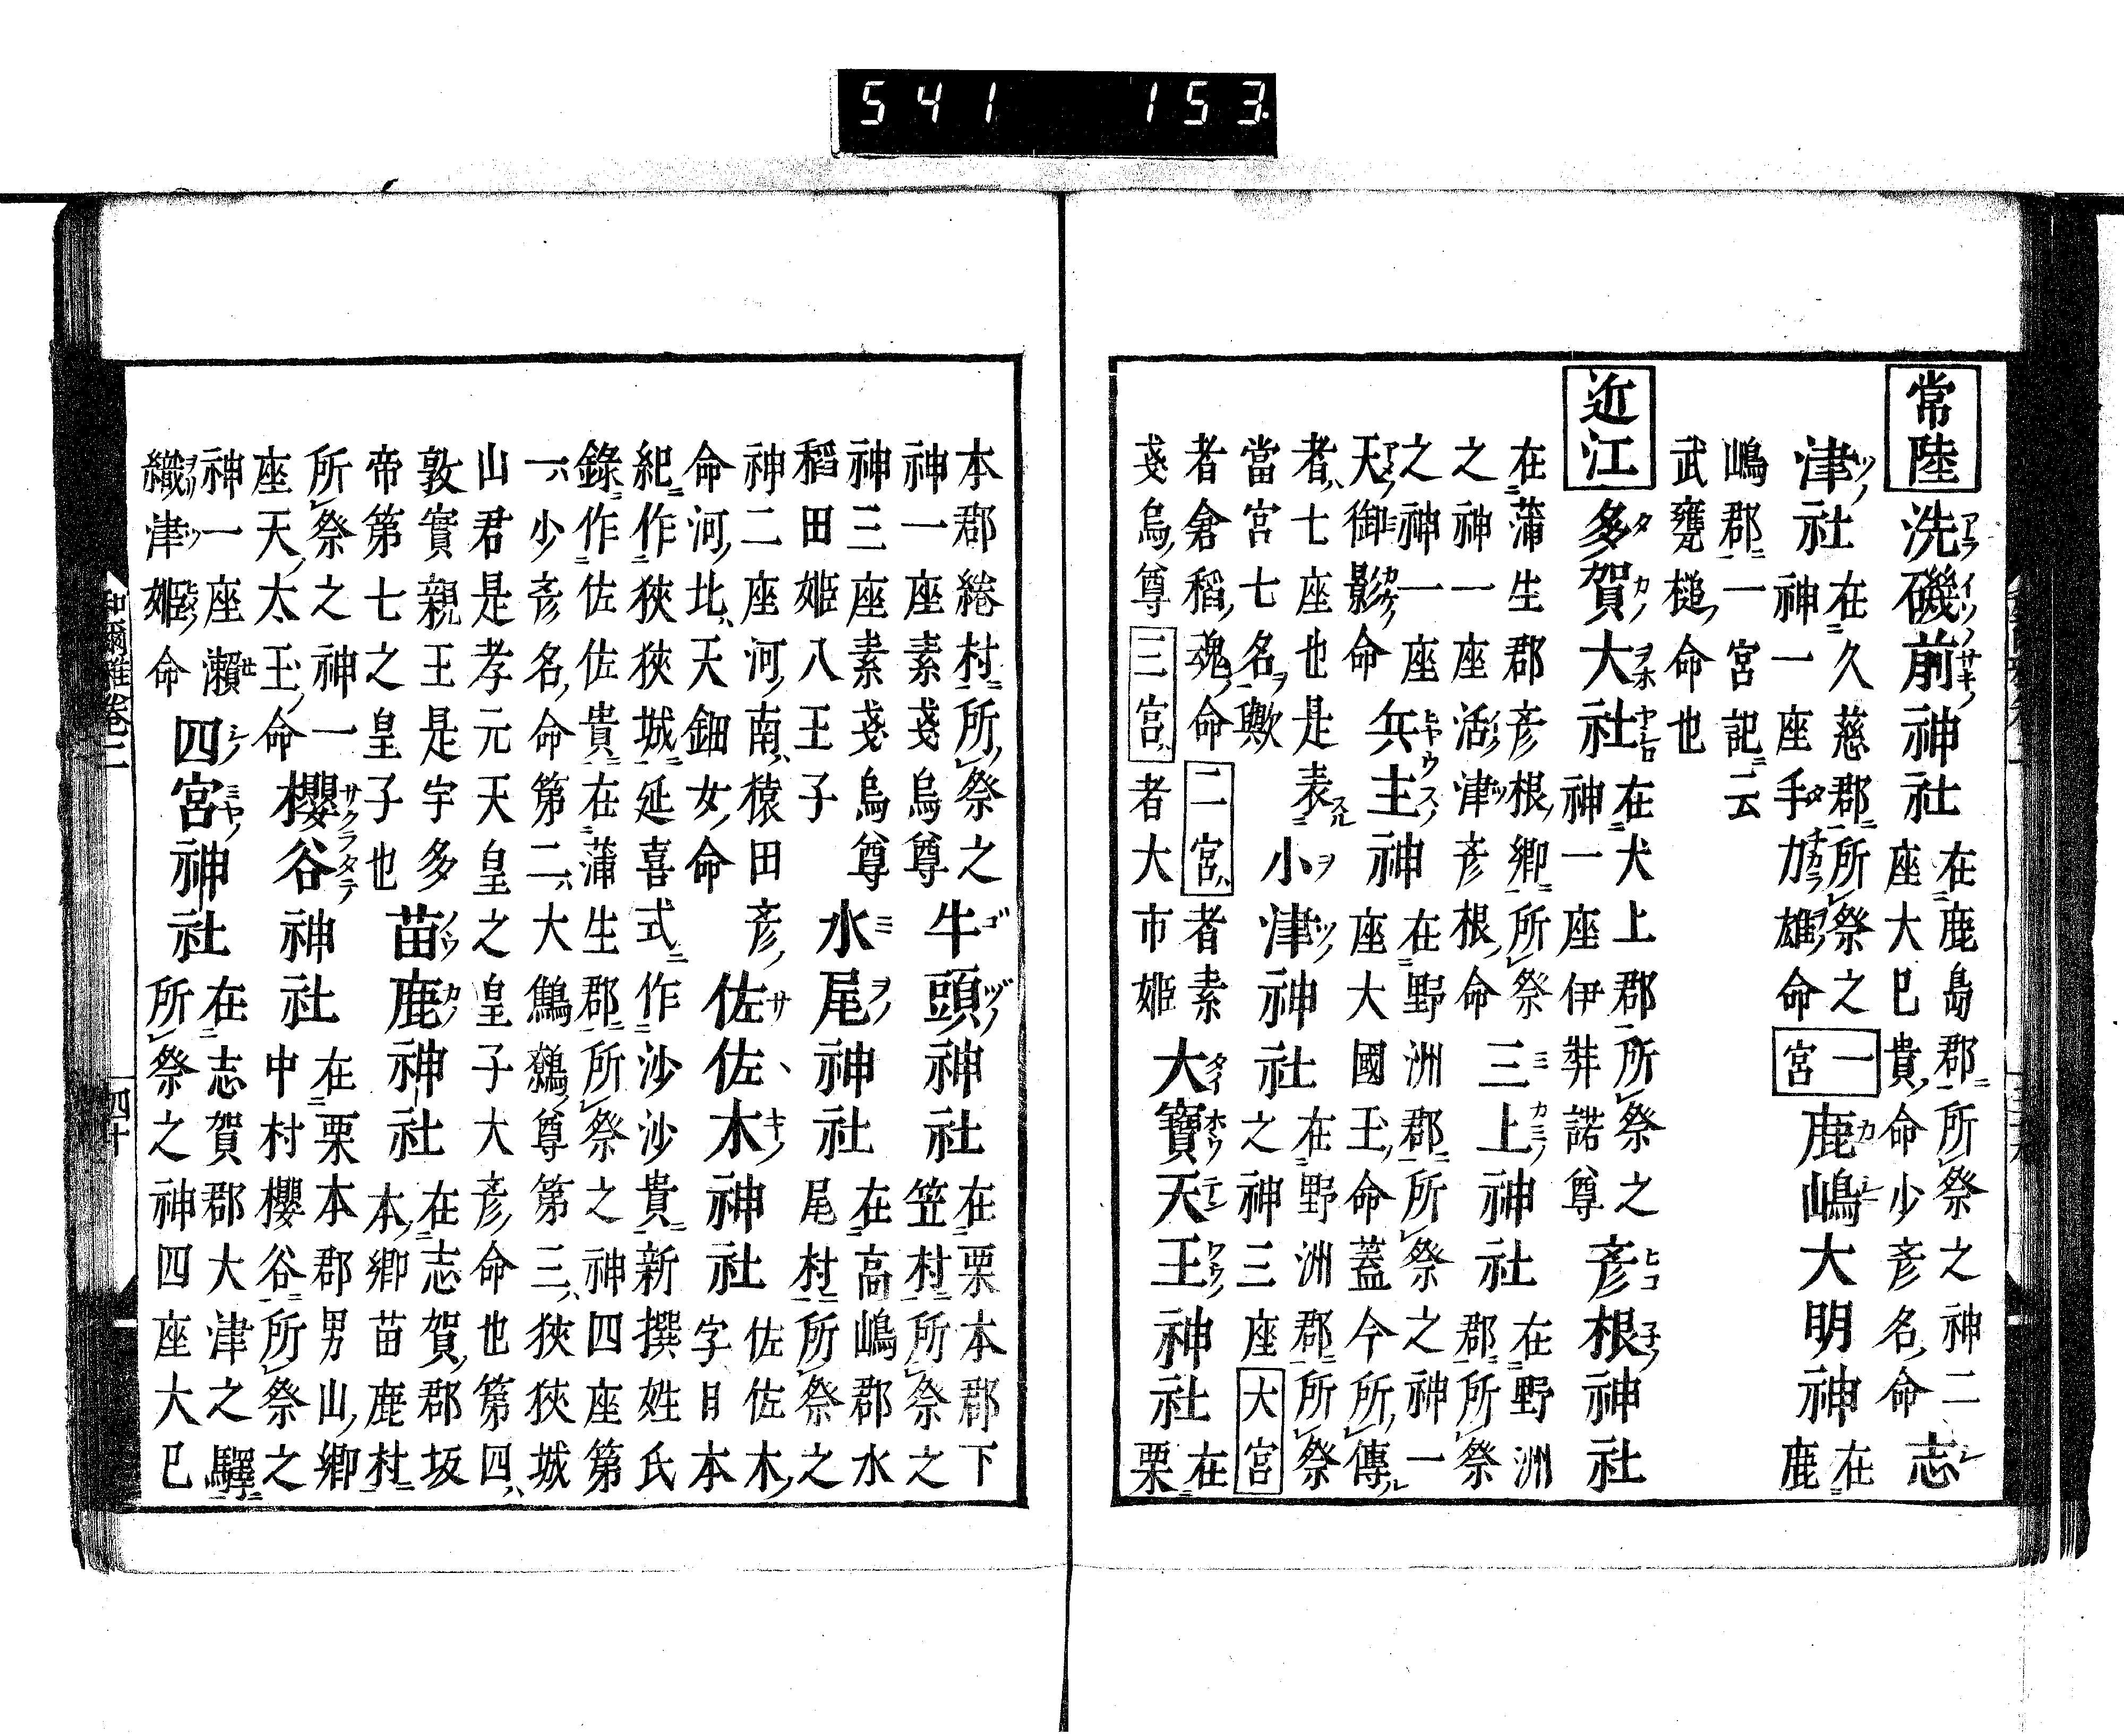 541 153
常陸 洗磯前神社 在鹿島郡所祭之神二
座大巳貴命少彦名命 志
津社 在久慈郡所祭之
神一座手力雄命 一宮 鹿嶋大明神 在
鹿
嶋郡一宮記云
武甕槌命也
近江 多賀大社 在犬上郡所祭之
神一座伊弉諾尊 彦根神社
在蒲生郡彦根郷所祭
之神一座活津彦根命 三上神社 在野洲
郡所祭
之神一座
天御影命 兵主神 在野洲郡所祭之神一
座大國王命蓋今所傳
者七座也是表
當宮七名歟 小津神社 在野洲郡所祭
之神三座 大宮
者倉稲魂命 二宮 者素
戔烏尊 三宮 者大市姫 大寶天王神社 在
栗
本郡綣村所祭之
神一座素戔烏尊 牛頭神社 在栗本郡下
笠村所祭之
神三座素戔烏尊
稻田姫八王子 水尾神社 在高嶋郡水
尾村所祭之
神二座河南猿田彦
命河北天鈿女命 佐佐木神社 佐佐木
字日本
紀作狹狹城延喜式作沙沙貴新撰姓氏
錄作佐佐貴在蒲生郡所祭之神四座第
一少彦名命第二大鷦鷯尊第三狹狹城
山君是孝元天皇之皇子大彦命也第四
敦實親王是宇多
帝第七之皇子也 苗鹿神社 在志賀郡坂
本郷苗鹿村
所祭之神一
座天太玉命 櫻谷神社 在栗本郡男山郷
中村櫻谷所祭之
神一座瀨
織津姫命 四宮神社 在志賀郡大津之驛
所祭之神四座大巳
和爾雅卷二 四十